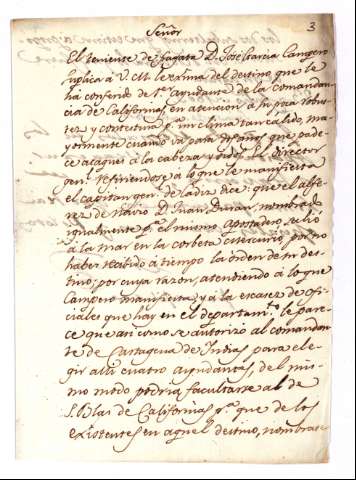 Señor
3
El teniente de fragata D. José Garcia Campero
suplica à V.M. le exima del destino, que le
há conferido de 1er. ayudante de la comandan
cia de Californias, en atencion à su poca robus
tez y contextura pa. un clima tan calido, ma
yormente cuando va para dos años que pade
ce ataques à la cabeza y oidos. El director
genl. refiriendose à lo que le manifiesta
el capitan gen. de Cadiz dice: que el alfe
rez de navio D. Juan Duran, nombrado
igualmente pa. el mismo apostadero, se hió
à la mar en la corbeta Mercurio, por no
haber recibido à tiempo la órden de su des
tino; por cuya razon, atendiendo à lo que
Campero manifiesta, y à la escasez de ofi
ciales que hay en el departamto. le pare
ce que asi como se autorizó al comandan
te de Cartagena de Indias para ele
gir alli cuatro ayudantes, del mis
mo modo podria facultarse al de
S. Blas de Californias pa. que de los
existentes en aquel destino, nombrase